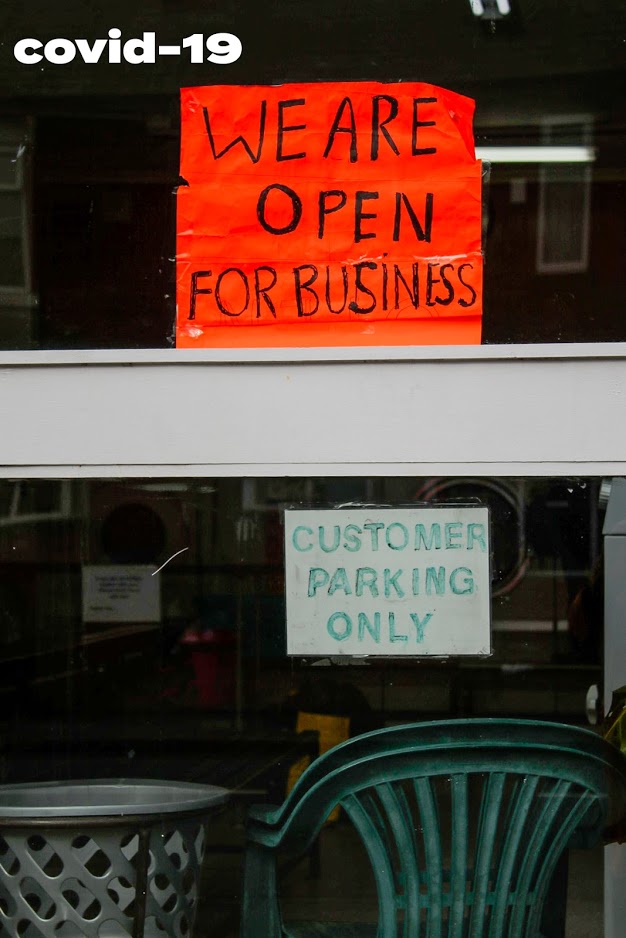 covid-19
WE ARE
OPEN
FOR BUSINESS
CUSTOMER
PARKING
ONLY